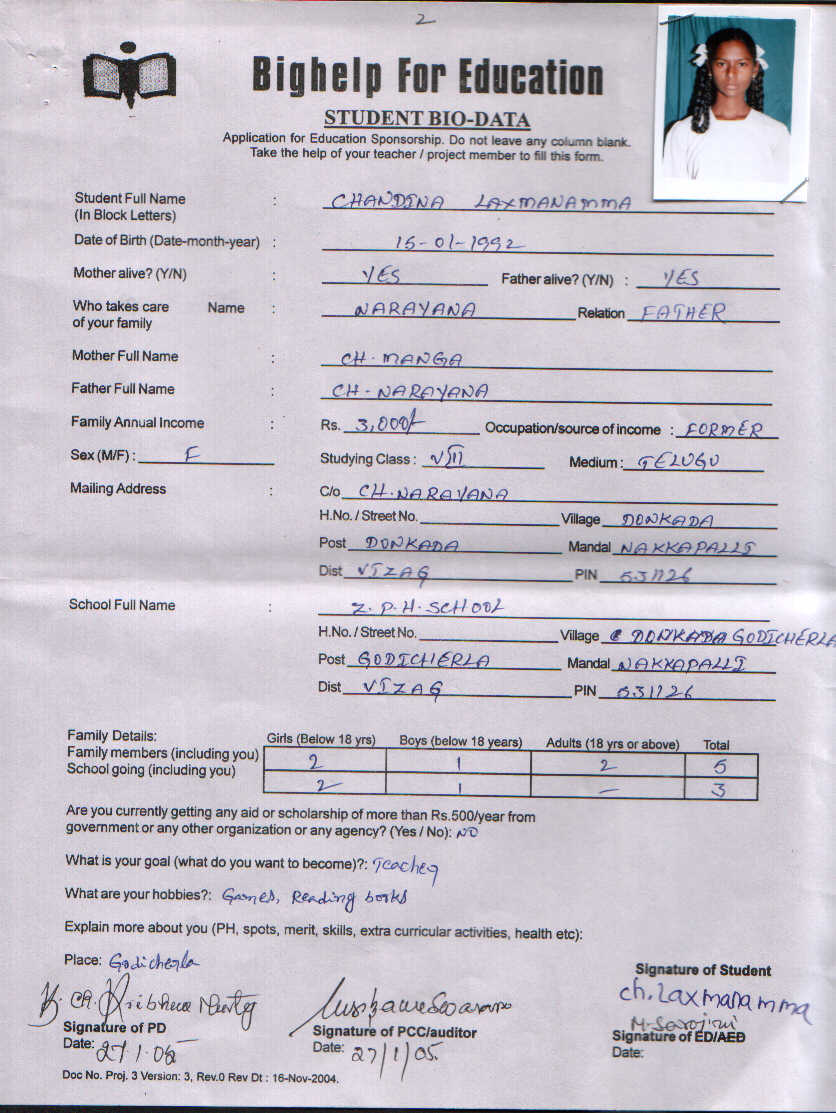 2
Bighelp For Education
STUDENT BIO-DATA
Application for Education Sponsorship. Do not leave any column blank.
Take the help of your teacher / project member to fill this form.
Student Full Name (In Block Letters) : CHANDINA LAXMANAMMA
Date of Birth (Date-month-year) : 15-01-1992
Mother alive? (Y/N) : YES Father alive? (Y/N) : YES
Who takes care of your family Name : NARAYANA Relation FATHER
Mother Full Name : CH. MANGA
Father Full Name : CH. NARAYANA
Family Annual Income : Rs. 3,000/- Occupation/source of income : FORMER
Sex (M/F) : F Studying Class : VIII Medium : TELUGU
Mailing Address : C/o CH. NARAYANA
H.No. / Street No. Village DONKADA
Post DONKADA Mandal NAKKAPALLI
Dist VIZAG PIN 531126
School Full Name : Z. P. H. SCHOOL
H.No. / Street No. Village DONKADA GODICHERLA
Post GODICHERLA Mandal NAKKAPALLI
Dist VIZAG PIN 531126
Family Details: Girls (Below 18 yrs) Boys (below 18 years) Adults (18 yrs or above) Total
Family members (including you) 2 1 2 5
School going (including you) 2 1 - 3
Are you currently getting any aid or scholarship of more than Rs.500/year from
government or any other organization or any agency? (Yes / No): NO
What is your goal (what do you want to become)?: Teacher
What are your hobbies?: Games, Reading books
Explain more about you (PH, spots, merit, skills, extra curricular activities, health etc):
Place: Godicherla
Signature of Student
ch. Laxmanamma
M. Sarojini
Signature of PD Signature of PCC/auditor Signature of ED/AED
Date: 27.1.05 Date: 27/1/05. Date:
Doc No. Proj. 3 Version: 3, Rev.0 Rev Dt : 16-Nov-2004.